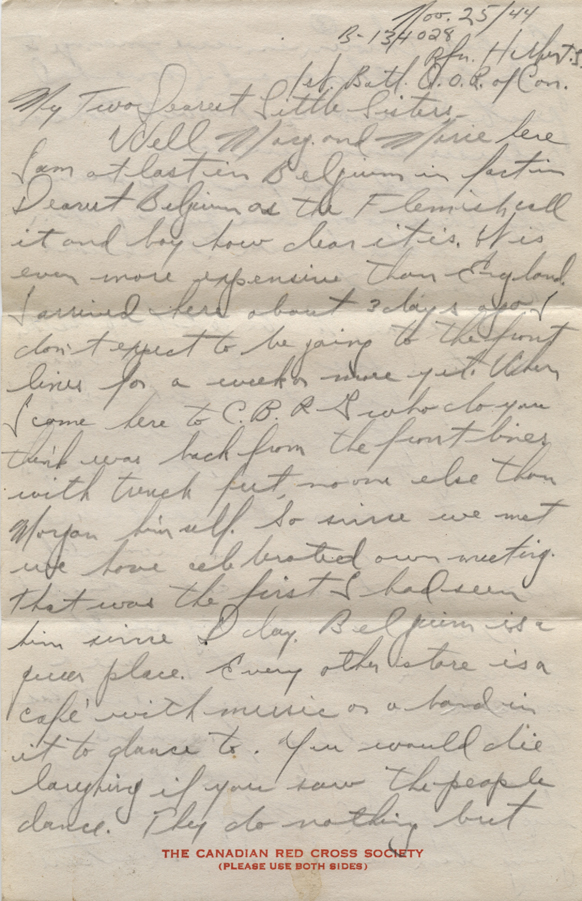 Nov. 25/44
B-134028
Rfn. Hilbert. S.
1st. Batt. Q.O.R. of Can.
My Two Dearest Little Sisters-
Well Mary and Marie here
I am at last in Belgium in fact in
Dearest Belgium as the Flemish call
it and boy how dear it is. It is
even more expensive than England.
I arrived here about 3 days ago I
don't expect to be going to the front
lines for a week or more yet. When
I came here to C.B.R.G who do you
think was back from the front lines
with trench feet, no one else than
Morgan himself. So since we met
we have celebrated our meeting.
that was the first I had seen
him since D day. Belgium is a
queer place. Every other store is a
café with music or a band in
it to dance to. You would die
laughing if you saw the people
dance. They do nothing but
THE CANADIAN RED CROSS SOCIETY
(PLEASE USE BOTH SIDES)